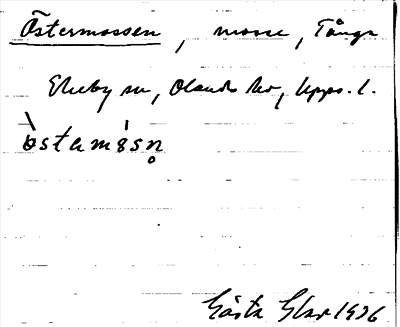 Östermossen, mosse, Tånga
Ekeby sn, Olands hd, Upps. l.
östamåsn̥
Gösta 1936